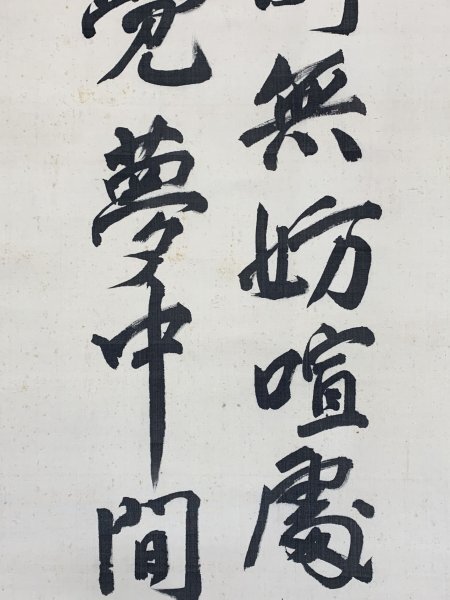 無妨喧處
覺夢中間